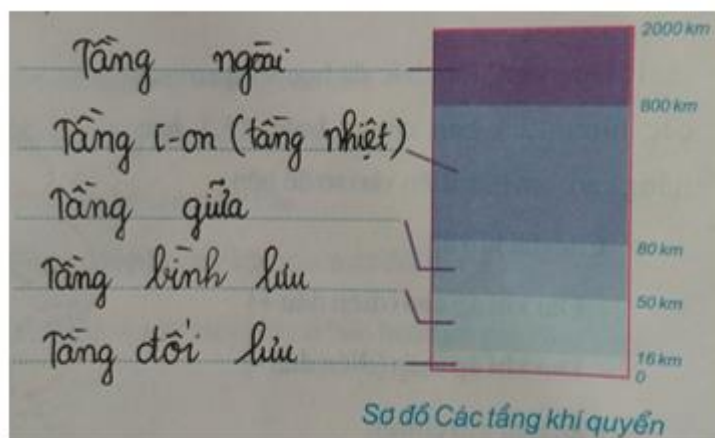 Tầng ngoài
Tầng i-on (tầng nhiệt)
Tầng giữa
Tầng bình lưu
Tầng đối lưu
2000 km
800 km
80 km
50 km
16 km
0
Sơ đồ Các tầng khí quyển